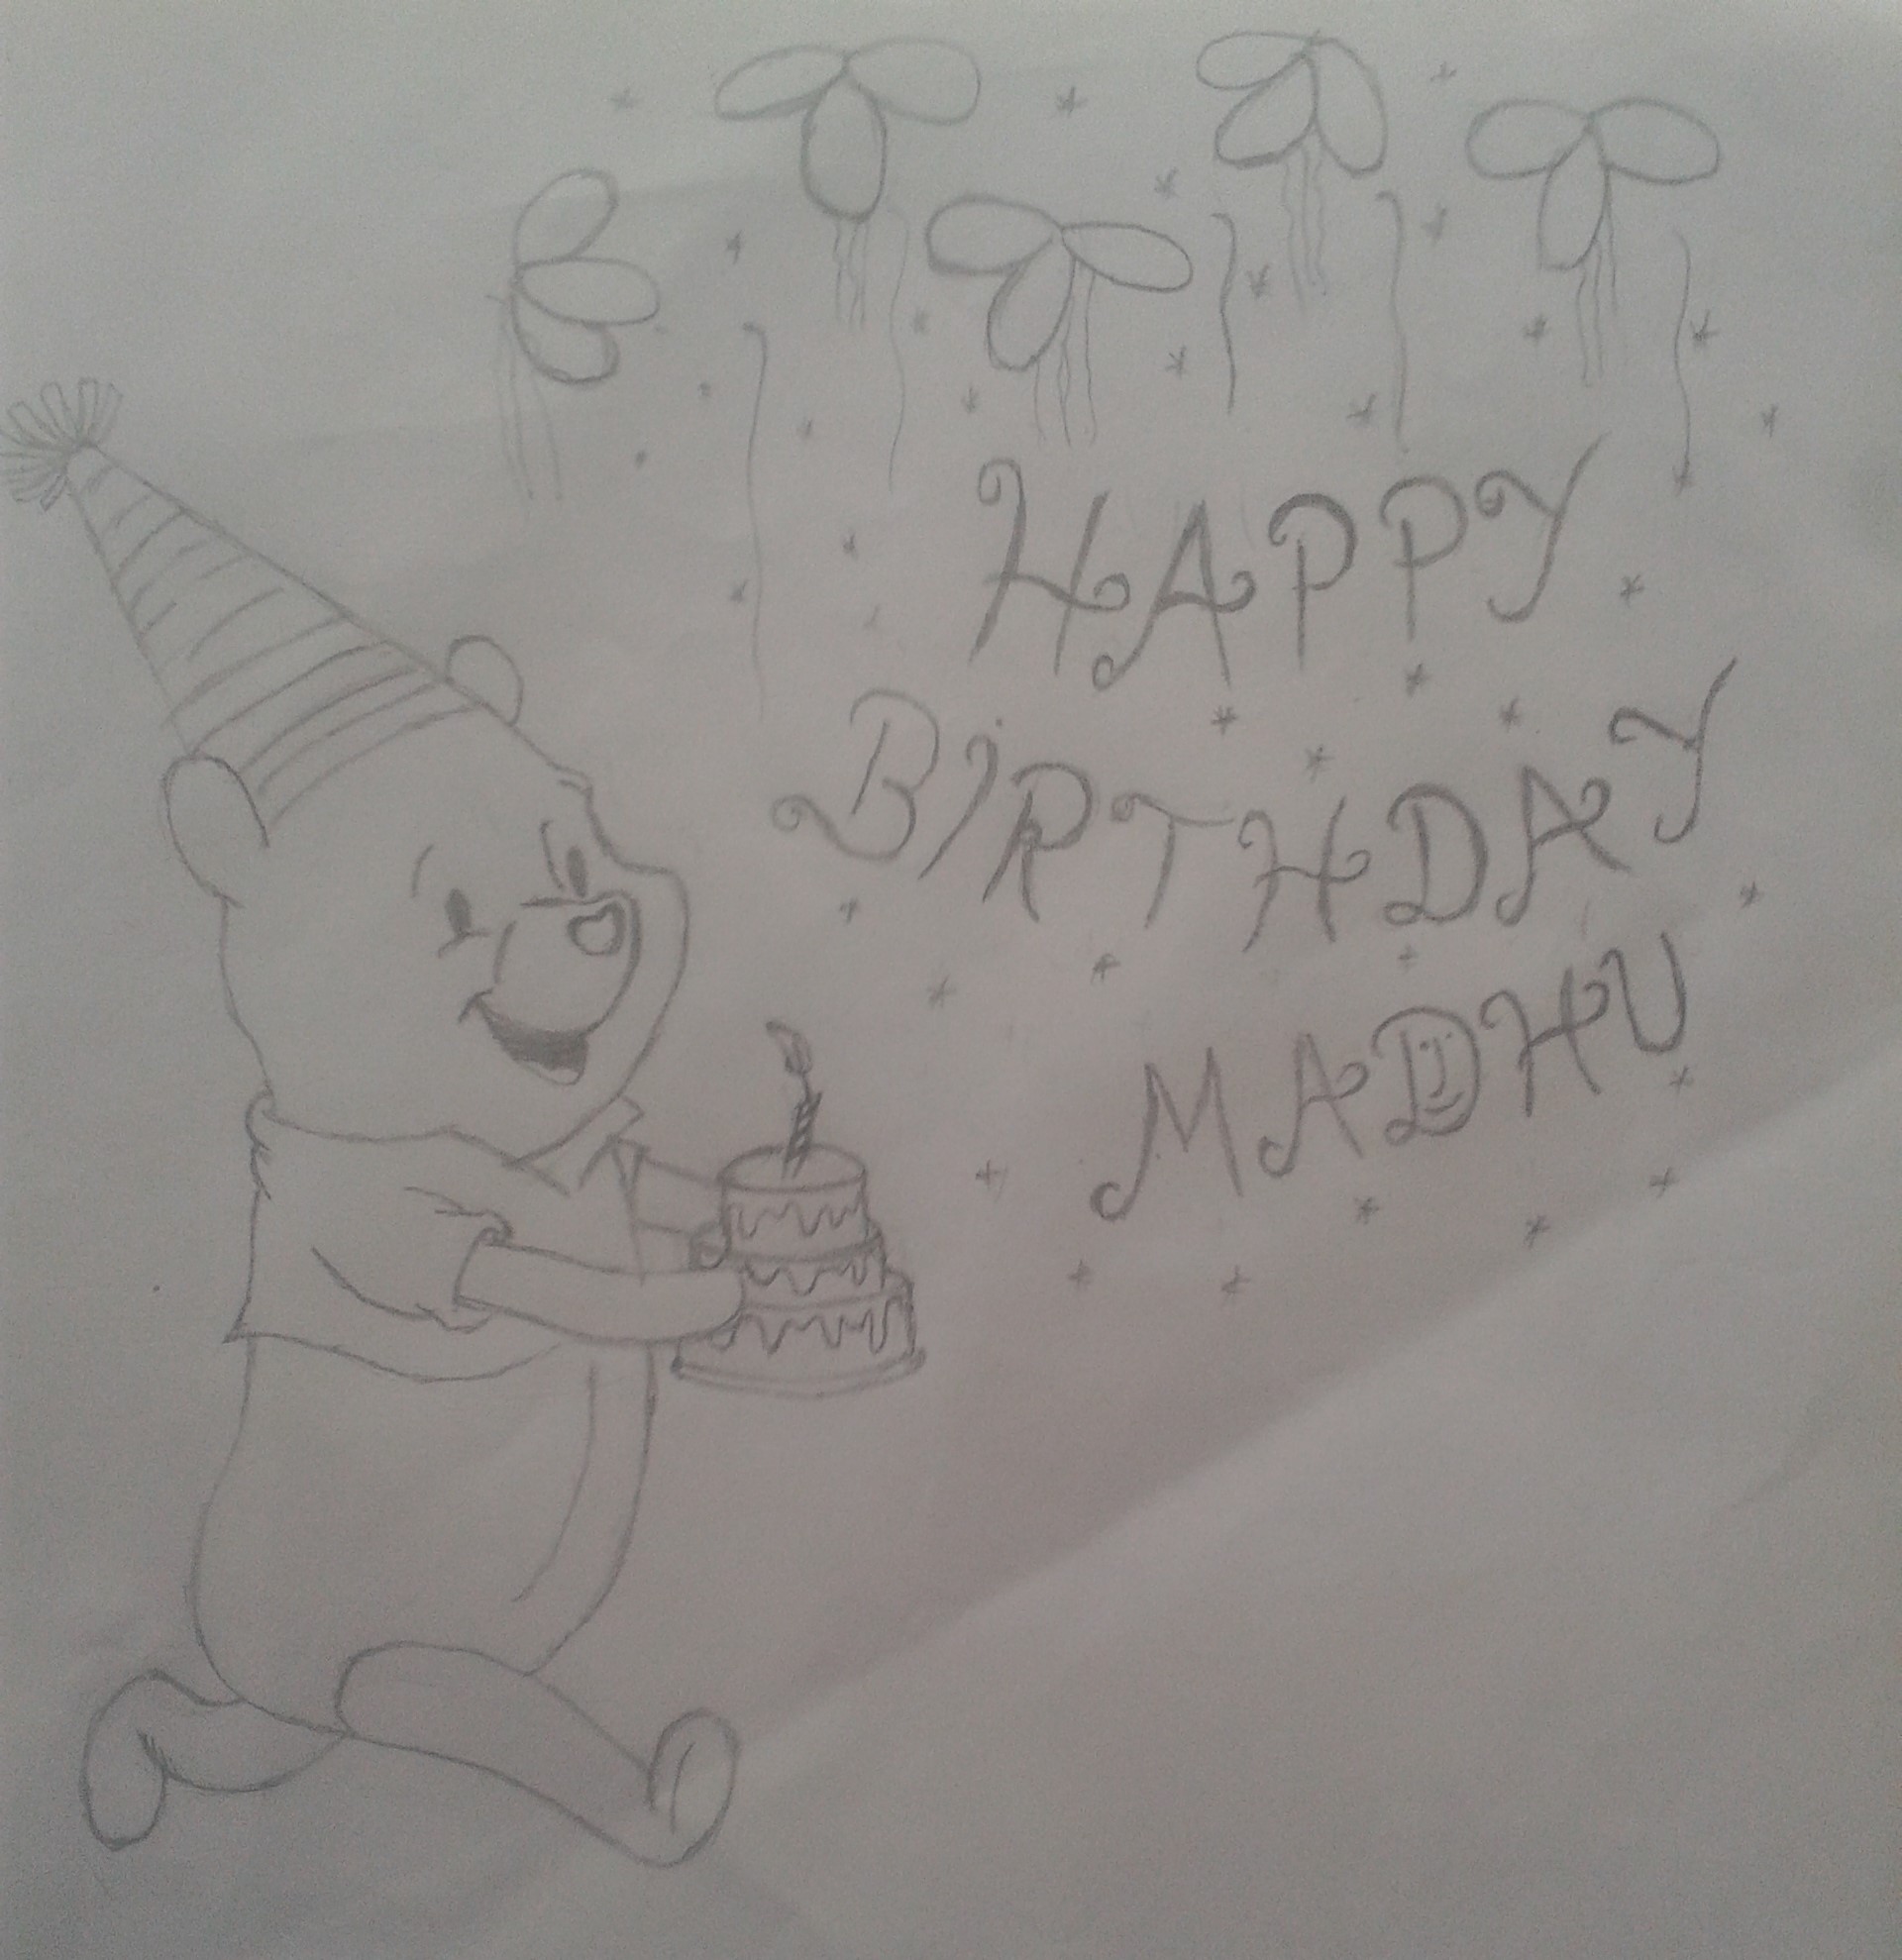 HAPPY
BIRTHDAY
MADHU